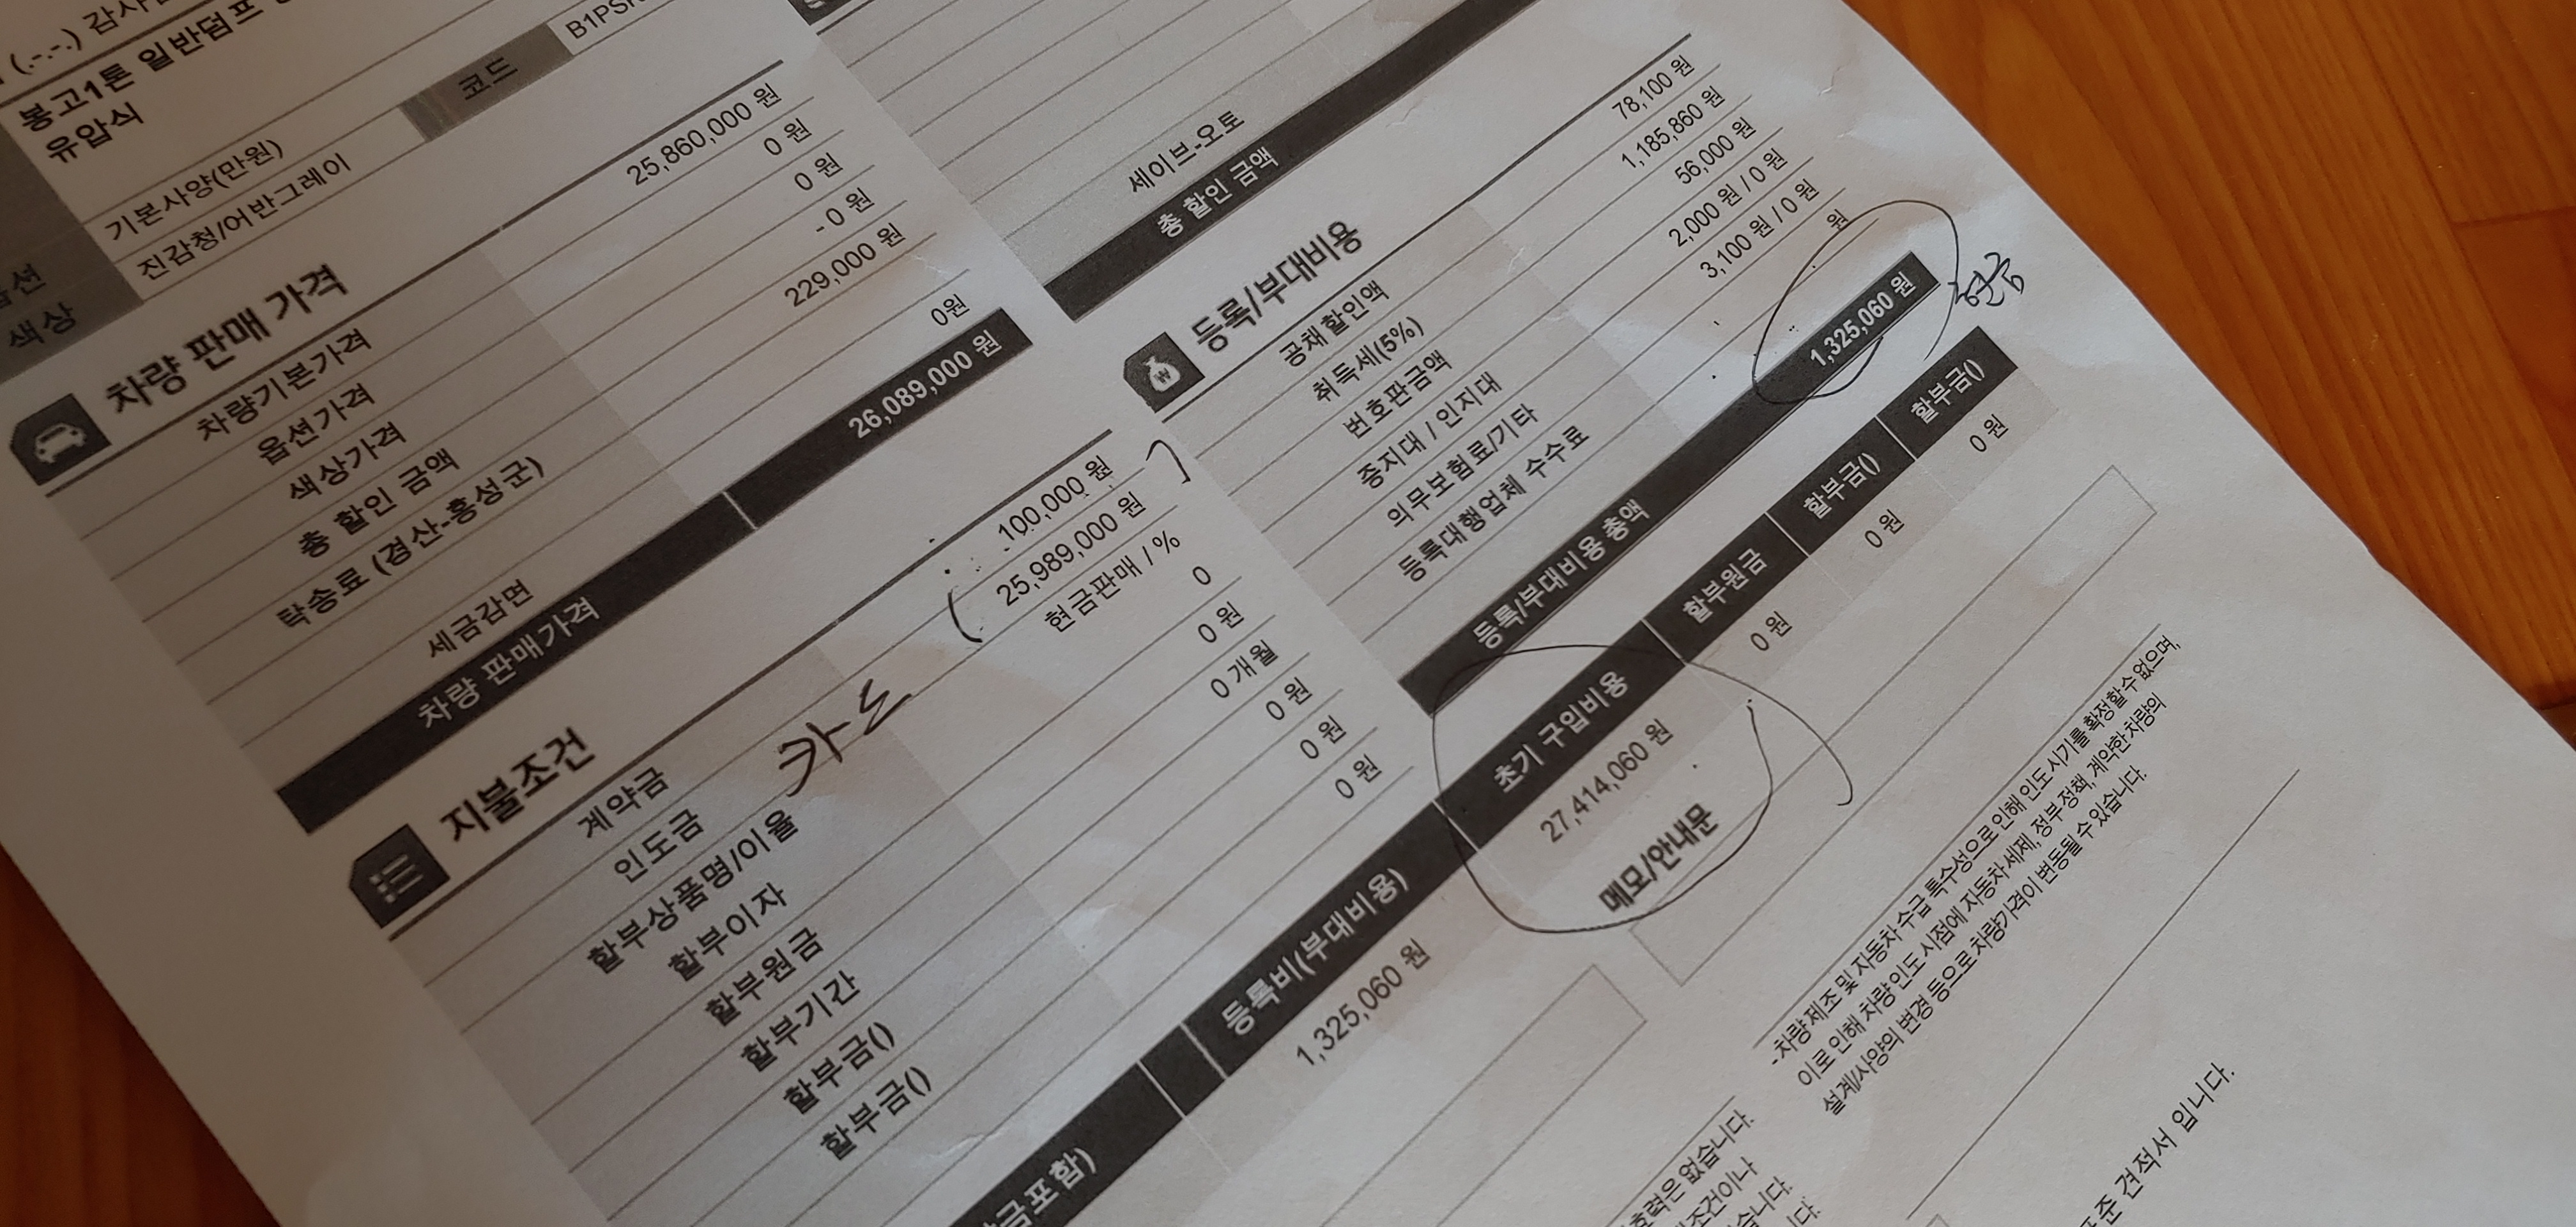 (.-.-.) 감사
봉고1톤 일반덤프
유압식
코드
B1PS
기본사양(만원)
진감청/어반그레이
색상
차량 판매 가격
차량기본가격 25,860,000 원
옵션가격 0 원
색상가격 0 원
총 할인 금액 - 0 원
탁송료 (경산-홍성군) 229,000 원
세금감면 0원
차량 판매가격 26,089,000 원
지불조건
계약금 100,000 원
인도금 25,989,000 원
카드
할부상품명/이율 현금판매 / %
할부이자 0
할부원금 0 원
할부기간 0 개월
할부금() 0 원
할부금() 0 원
0 원
세이브-오토
총 할인 금액
등록/부대비용
공채할인액 78,100 원
취득세(5%) 1,185,860 원
번호판금액 56,000 원
증지대 / 인지대 2,000 원 / 0 원
의무보험료/기타 3,100 원 / 0 원
등록대행업체 수수료 원
등록/부대비용 총액 1,325,060 원
현금
금포함) 등록비(부대비용) 초기 구입비용 할부원금 할부금() 할부금()
1,325,060 원 27,414,060 원 0 원 0 원 0 원
메모/안내문
-차량 제조 및 자동차 수급 특수성으로 인해 인도 시기를 확정할 수 없으며,
이로 인해 차량 인도 시점에 자동차 세제, 정부 정책, 계약한 차량의
설계/사양의 변경 등으로 차량가격이 변동될 수 있습니다.
효력은 없습니다.
조건이나
습니다.
니다.
준 견적서 입니다.